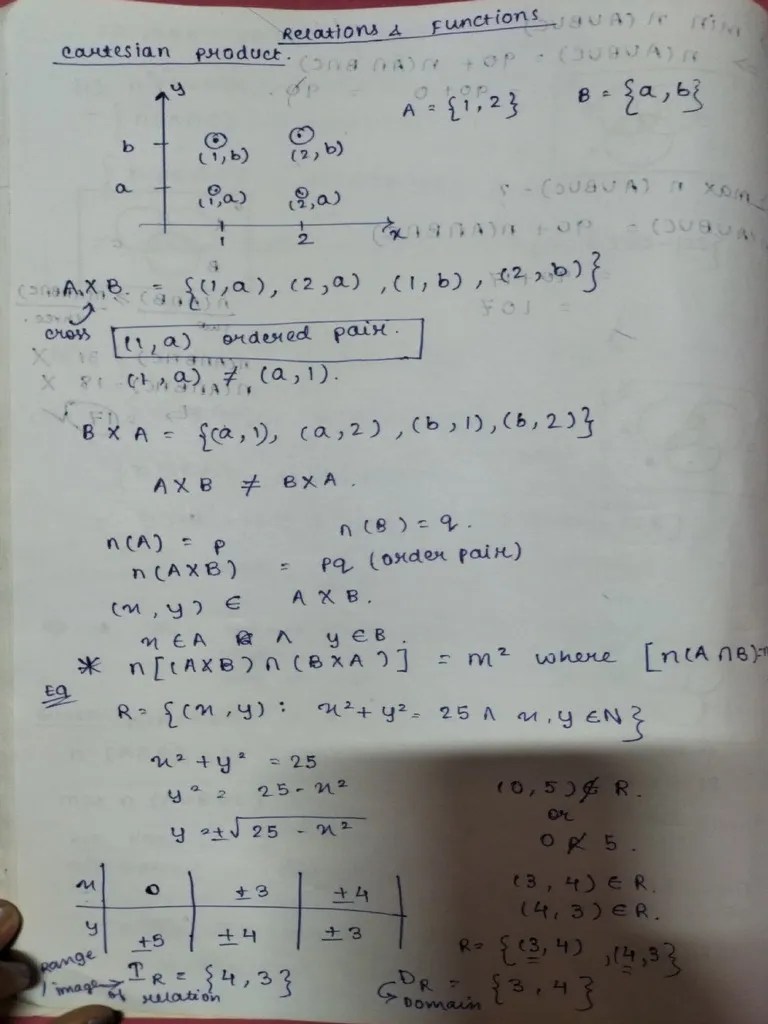 Relations & Functions
Cartesian product.
y
A = {1, 2}
B = {a, b}
b
(1, b) (2, b)
a
(1, a) (2, a)
1 2 x
A X B. = {(1, a), (2, a), (1, b), (2, b)}
cross
(1, a) ordered pair.
(1, a) ≠ (a, 1).
B X A = {(a, 1), (a, 2), (b, 1), (b, 2)}
A X B ≠ B X A.
n(A) = p n(B) = q.
n(A X B) = pq (order pair)
(x, y) ∈ A X B.
x ∈ A ∧ y ∈ B.
* n[(A X B) ∩ (B X A)] = m² where [n(A ∩ B) =
Eg
R = {(x, y) : x² + y² = 25 ∧ x, y ∈ N}
x² + y² = 25
y² = 25 - x²
y = ±√25 - x²
(0, 5) ∉ R.
or
0 R̸ 5.
x 0 ±3 ±4
y ±5 ±4 ±3
(3, 4) ∈ R.
(4, 3) ∈ R.
R = {(3, 4), (4, 3}
Range / image of relation → I R = {4, 3}
D R = {3, 4}
Domain